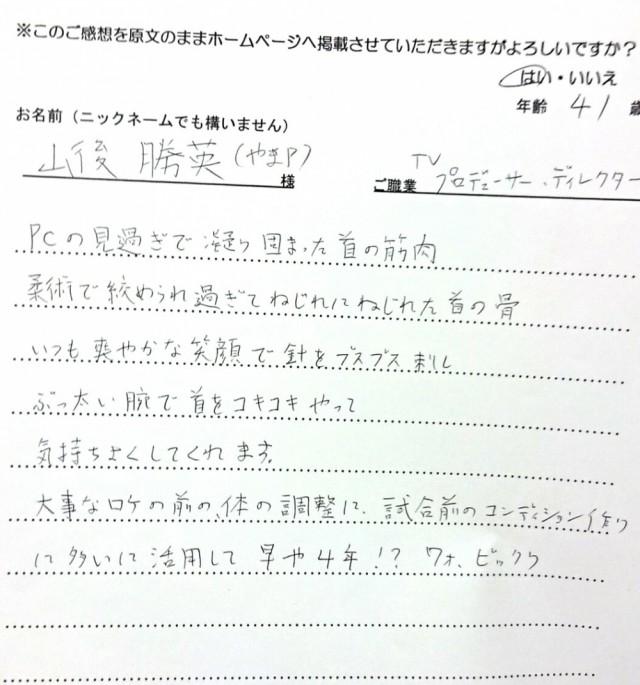 ※このご感想を原文のままホームページへ掲載させていただきますがよろしいですか?
はい・いいえ
年齢 41 歳
お名前(ニックネームでも構いません)
山後 勝英(やまP) 様
TV
ご職業 プロデューサー、ディレクター
PCの見過ぎで凝り固まった首の筋肉
柔術で絞められ過ぎてねじれにねじれた首の骨
いつも爽やかな笑顔で針をブスブス刺し
ぶっ太い腕で首をコキコキやって
気持ちよくしてくれます。
大事なロケの前の、体の調整に、試合前のコンディション作り
に多いに活用して早や4年!? ワォ、ビックリ